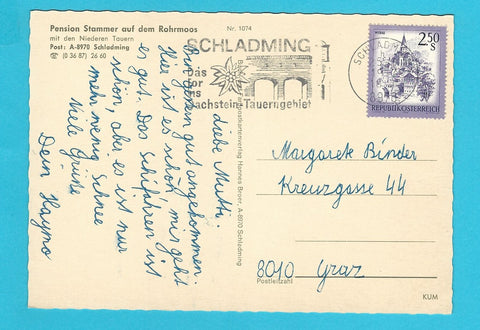 Pension Stammer auf dem Rohrmoos
mit den Niederen Tauern
Post: A-8970 Schladming
☏ (0 36 87) 26 60
Nr. 1074
SCHLADMING
Das
Dachstein-Tauerngebiet
2.50
S
REPUBLIK ÖSTERREICH
Liebe Mutti!
Bin gern gut angekommen.
Hier ist es schön, mir geht
es gut. Das Schifahren ist
schön, aber es ist nur
mehr wenig Schnee
Viele Grüße
Dein Haymo
Margarete Binder
Kreuzgasse 44
8010 Graz
Postleitzahl
KUM